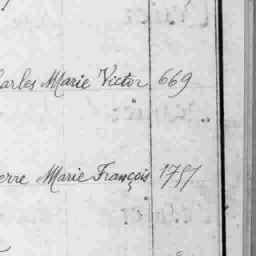 arles Marie Victor 669
erre Marie François 1757